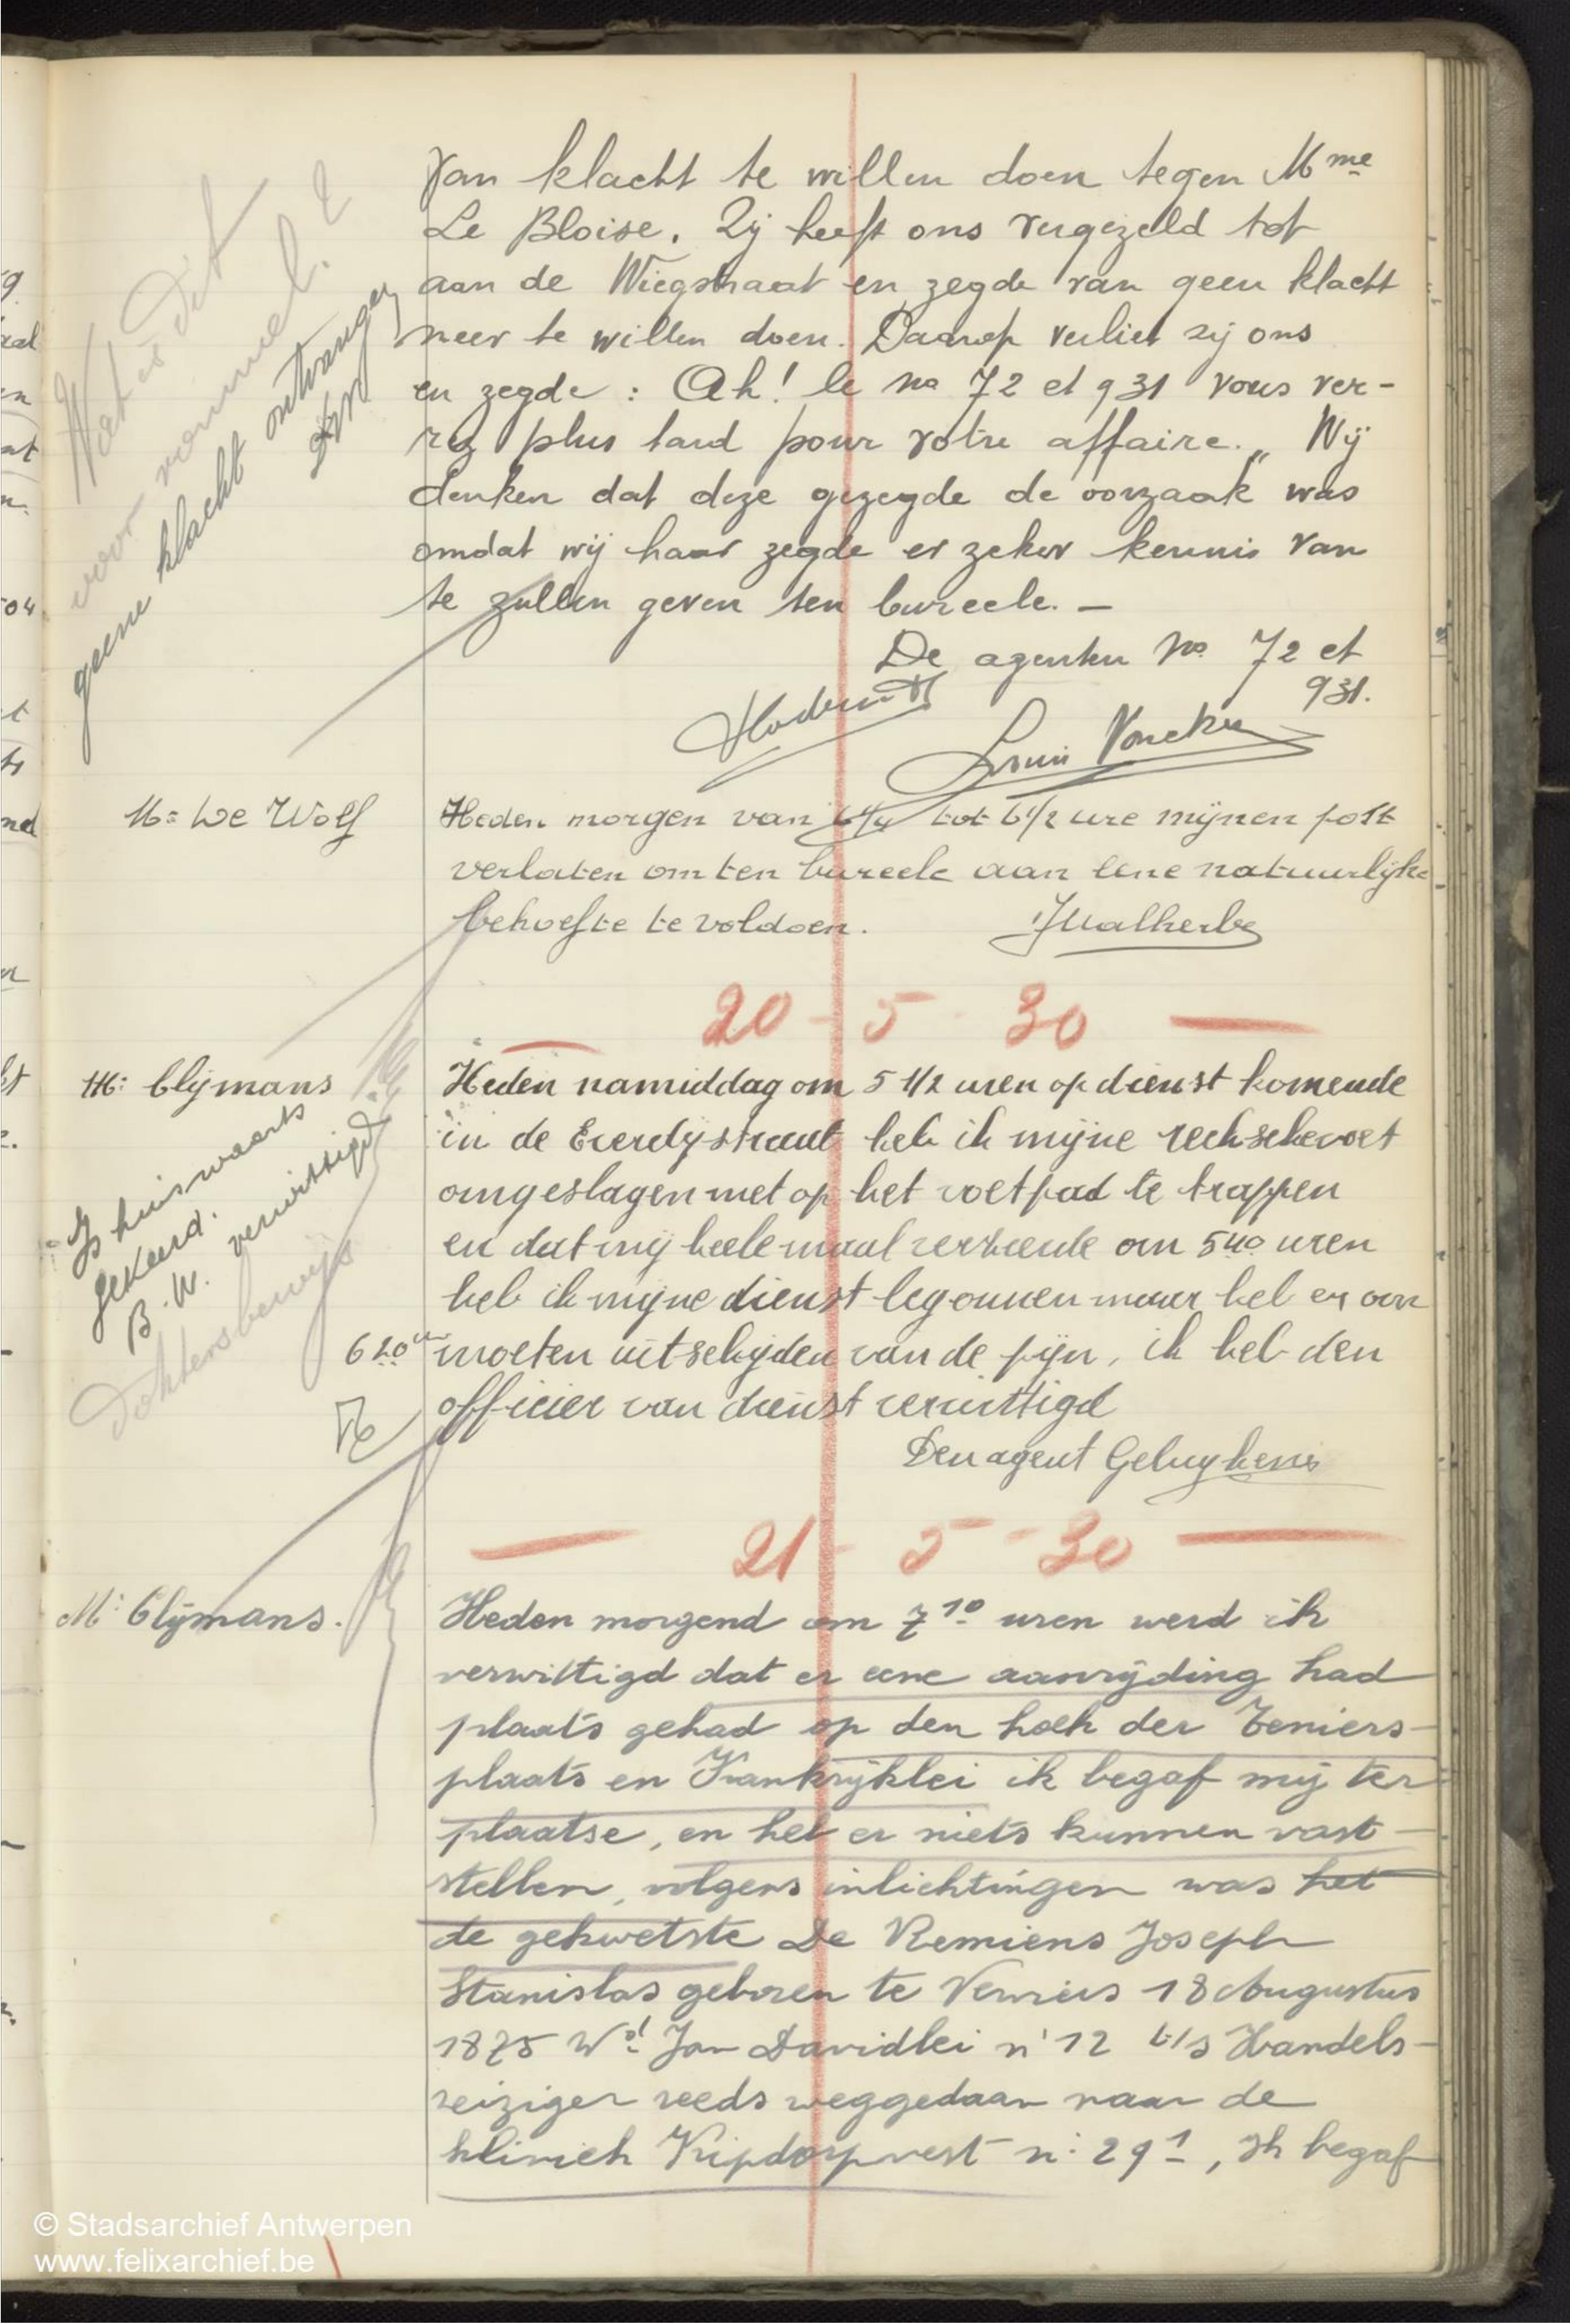 van klacht te willen doen tegen Mme
Le Bloise. Zij heeft ons vergezeld tot
aan de Wiegstraat en zegde van geen klacht
neer te willen doen. Daarop verliet zij ons
en zegde : Ah! le no 72 et 931 vous ver-
rez plus tard pour votre affaire.„ Wij
denken dat deze gezegde de oorzaak was
omdat wij haar zegde er zeker kennis van
te zullen geven ten bureele. —
De agenten No 72 et
931.
Wat is dit
voor rommel?
geene klacht ontvangen
Louis Voncken
M: De Wolf
Heden morgen van 6 1/4 tot 6 1/2 ure mijnen post
verlaten om ten bureele aan eene natuurlijke
behoefte te voldoen. Malherbe
20 - 5 - 30
M: Clijmans
Heden namiddag om 5 1/2 uren op dienst komende
in de Everdijstraat heb ik mijne rechschevoet
omgeslagen met op het voetpad te trappen
en dat mij heelemaal verkeerde om 5 40 uren
heb ik mijne dienst begonnen maar heb er van
moeten uitschijden van de pijn, ik heb den
officier van dienst verwittigd
Den agent Geluykens
Is huiswaarts
gekeerd.
B. W. verwittigd
Doktersbewijs
6 20 u
21 - 5 - 30
M: Clijmans.
Heden morgend om 7 10 uren werd ik
verwittigd dat er eene aanrijding had
plaats gehad op den hoek der Teniers-
plaats en Frankrijklei ik begaf mij ter
plaatse, en heb er niets kunnen vast-
stellen, volgens inlichtingen was het
de gekwetste De Remiens Joseph
Stanislas geboren te Verviers 18 Augustus
1875 Wd. Jan Davidlei n° 12 b/s Handels-
reiziger reeds weggedaan naar de
kliniek Kipdorpvest n: 29 1, Ik begaf
© Stadsarchief Antwerpen
www.felixarchief.be